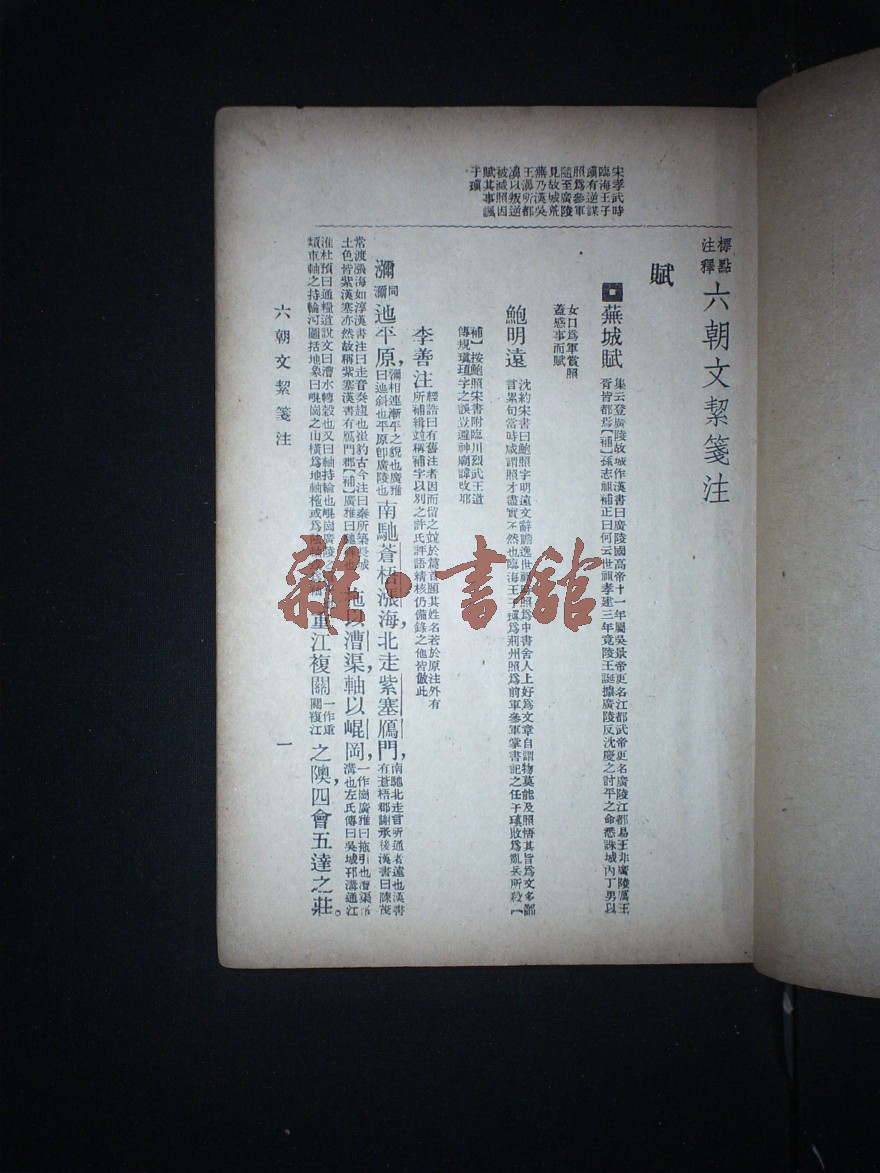 宋孝武時
臨海王子
瑱有逆謀
照爲參軍
隨至廣陵
見故城荒
蕪乃漢吳
王濞所都
濞以叛逆
被滅照因
賦其事諷
于瑱
標點
注釋
六朝文絜箋注
賦
蕪城賦
集云登廣陵故城作漢書曰廣陵國高帝十一年屬吳景帝更名江都武帝更名廣陵江都易王非廣陵厲王
胥皆都焉【補】孫志祖補正曰何云世祖孝建三年竟陵王誕據廣陵反沈慶之討平之命悉誅城內丁男以
女口爲軍賞照
蓋感事而賦
鮑明遠
沈約宋書曰鮑照字明遠文辭贍逸世祖時照爲中書舍人上好爲文章自謂物莫能及照悟其旨爲文多鄙
言累句當時咸謂照才盡實不然也臨海王子瑱爲荊州照爲前軍參軍掌書記之任子瑱敗爲亂兵所殺【
補】按鮑照宋書附臨川烈武王道
傳規瑱頊字之誤豈避神廟諱改耶
李善注
經誥曰有舊注者因而留之竝於篇首題其姓名著於原注外有
所補緝竝稱補字以別之許氏評語精核仍備錄之他皆倣此
瀰
同
瀰
迆平原，
瀰相連漸平之貌也廣雅
曰迆斜也平原卽廣陵也
南馳蒼梧漲海，北走紫塞鴈門，
南馳北走言所通者遠也漢書
有蒼梧郡謝承後漢書曰陳茂
常渡漲海如淳漢書注曰走音奏趨也崔豹古今注曰秦所築長城
土色皆紫漢塞亦然故稱紫塞漢書有鴈門郡【補】廣雅曰馳奔也
柂以漕渠，軸以崐岡，
一作崗廣雅曰柂引也漕渠邗
溝也左氏傳曰吳城邗溝通江
淮杜預曰通糧道說文曰漕水轉轂也又曰軸持輪也崐崗廣陵之
類車軸之持輪河圖括地象曰崐崗之山橫爲地軸柂或爲
重江複關
一作重
關複江
之隩，四會五達之莊。
六朝文絜箋注
一
雜·書館